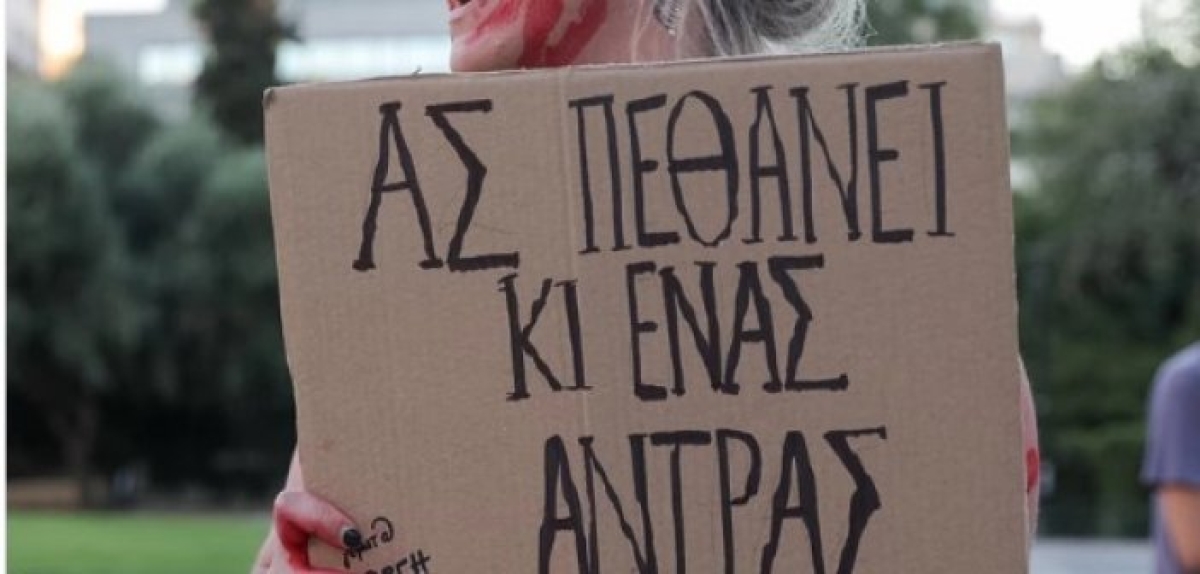 ΑΣ ΠΕΘΑΝΕΙ
ΚΙ ΕΝΑΣ
ΑΝΤΡΑΣ